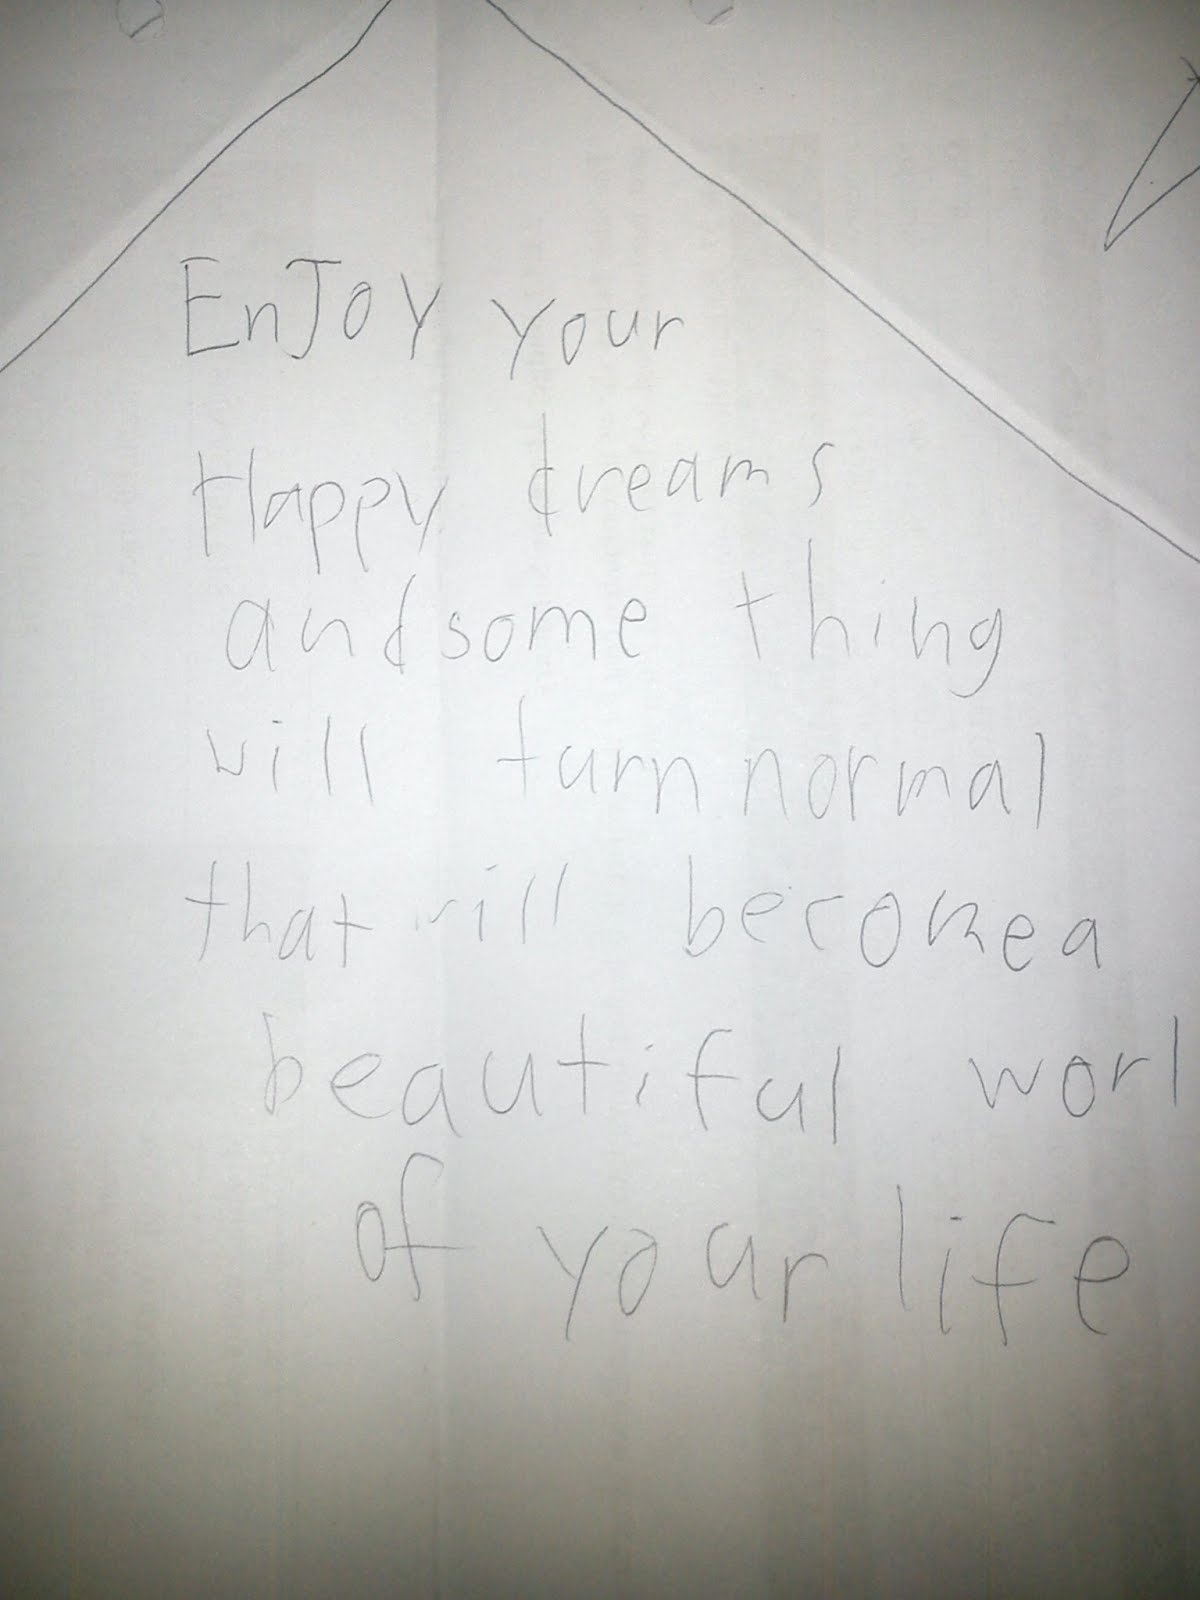 EnJoy your
Happy dreams
and some thing
will turn normal
that will become a
beautiful worl
of your life